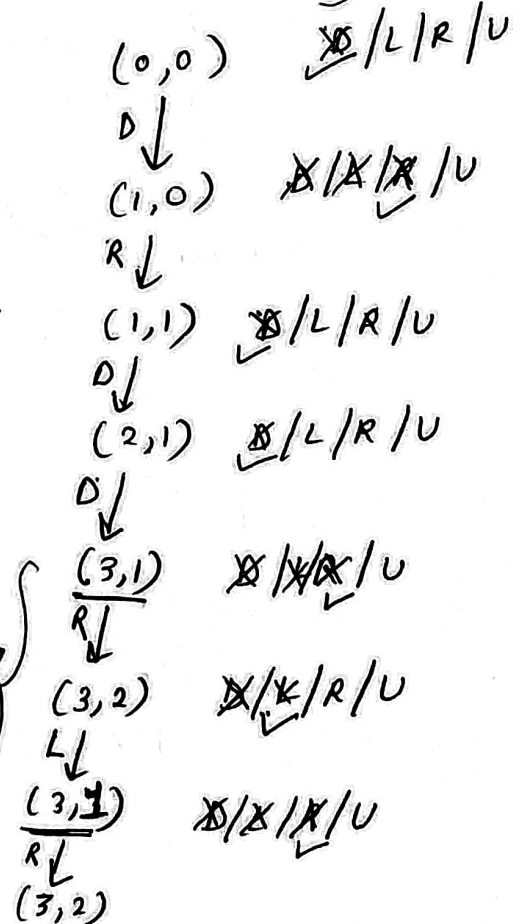 (0,0) D/L/R/U
D
(1,0) D/L/R/U
R
(1,1) D/L/R/U
D
(2,1) D/L/R/U
D
(3,1) D/L/R/U
R
(3,2) D/L/R/U
L
(3,1) D/L/R/U
R
(3,2)